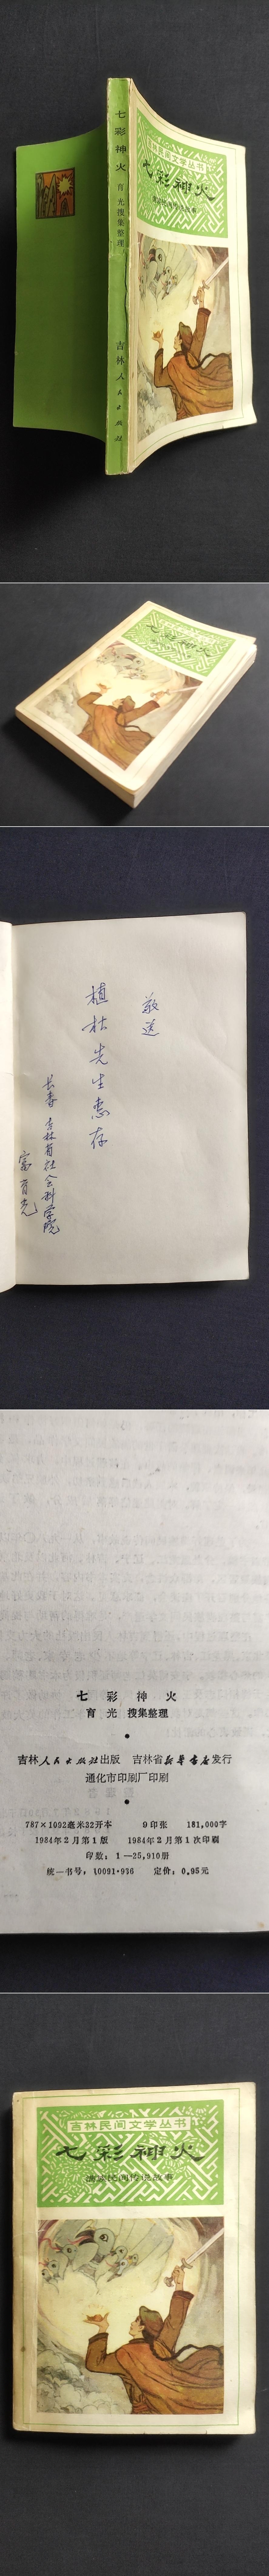 七彩神火
育光搜集整理
吉林人民出版社
吉林民间文学丛书
七彩神火
满族民间传说故事
七彩神火
敬送
植林先生惠存
长春 吉林省社会科学院
富育光
七彩神火
育光 搜集整理
吉林人民出版社出版 吉林省新华书店发行
通化市印刷厂印刷
787×1092毫米32开本 9印张 181,000字
1984年2月第1版 1984年2月第1次印刷
印数：1—25,910册
统一书号：10091·936 定价：0.95元
吉林民间文学丛书
七彩神火
满族民间传说故事